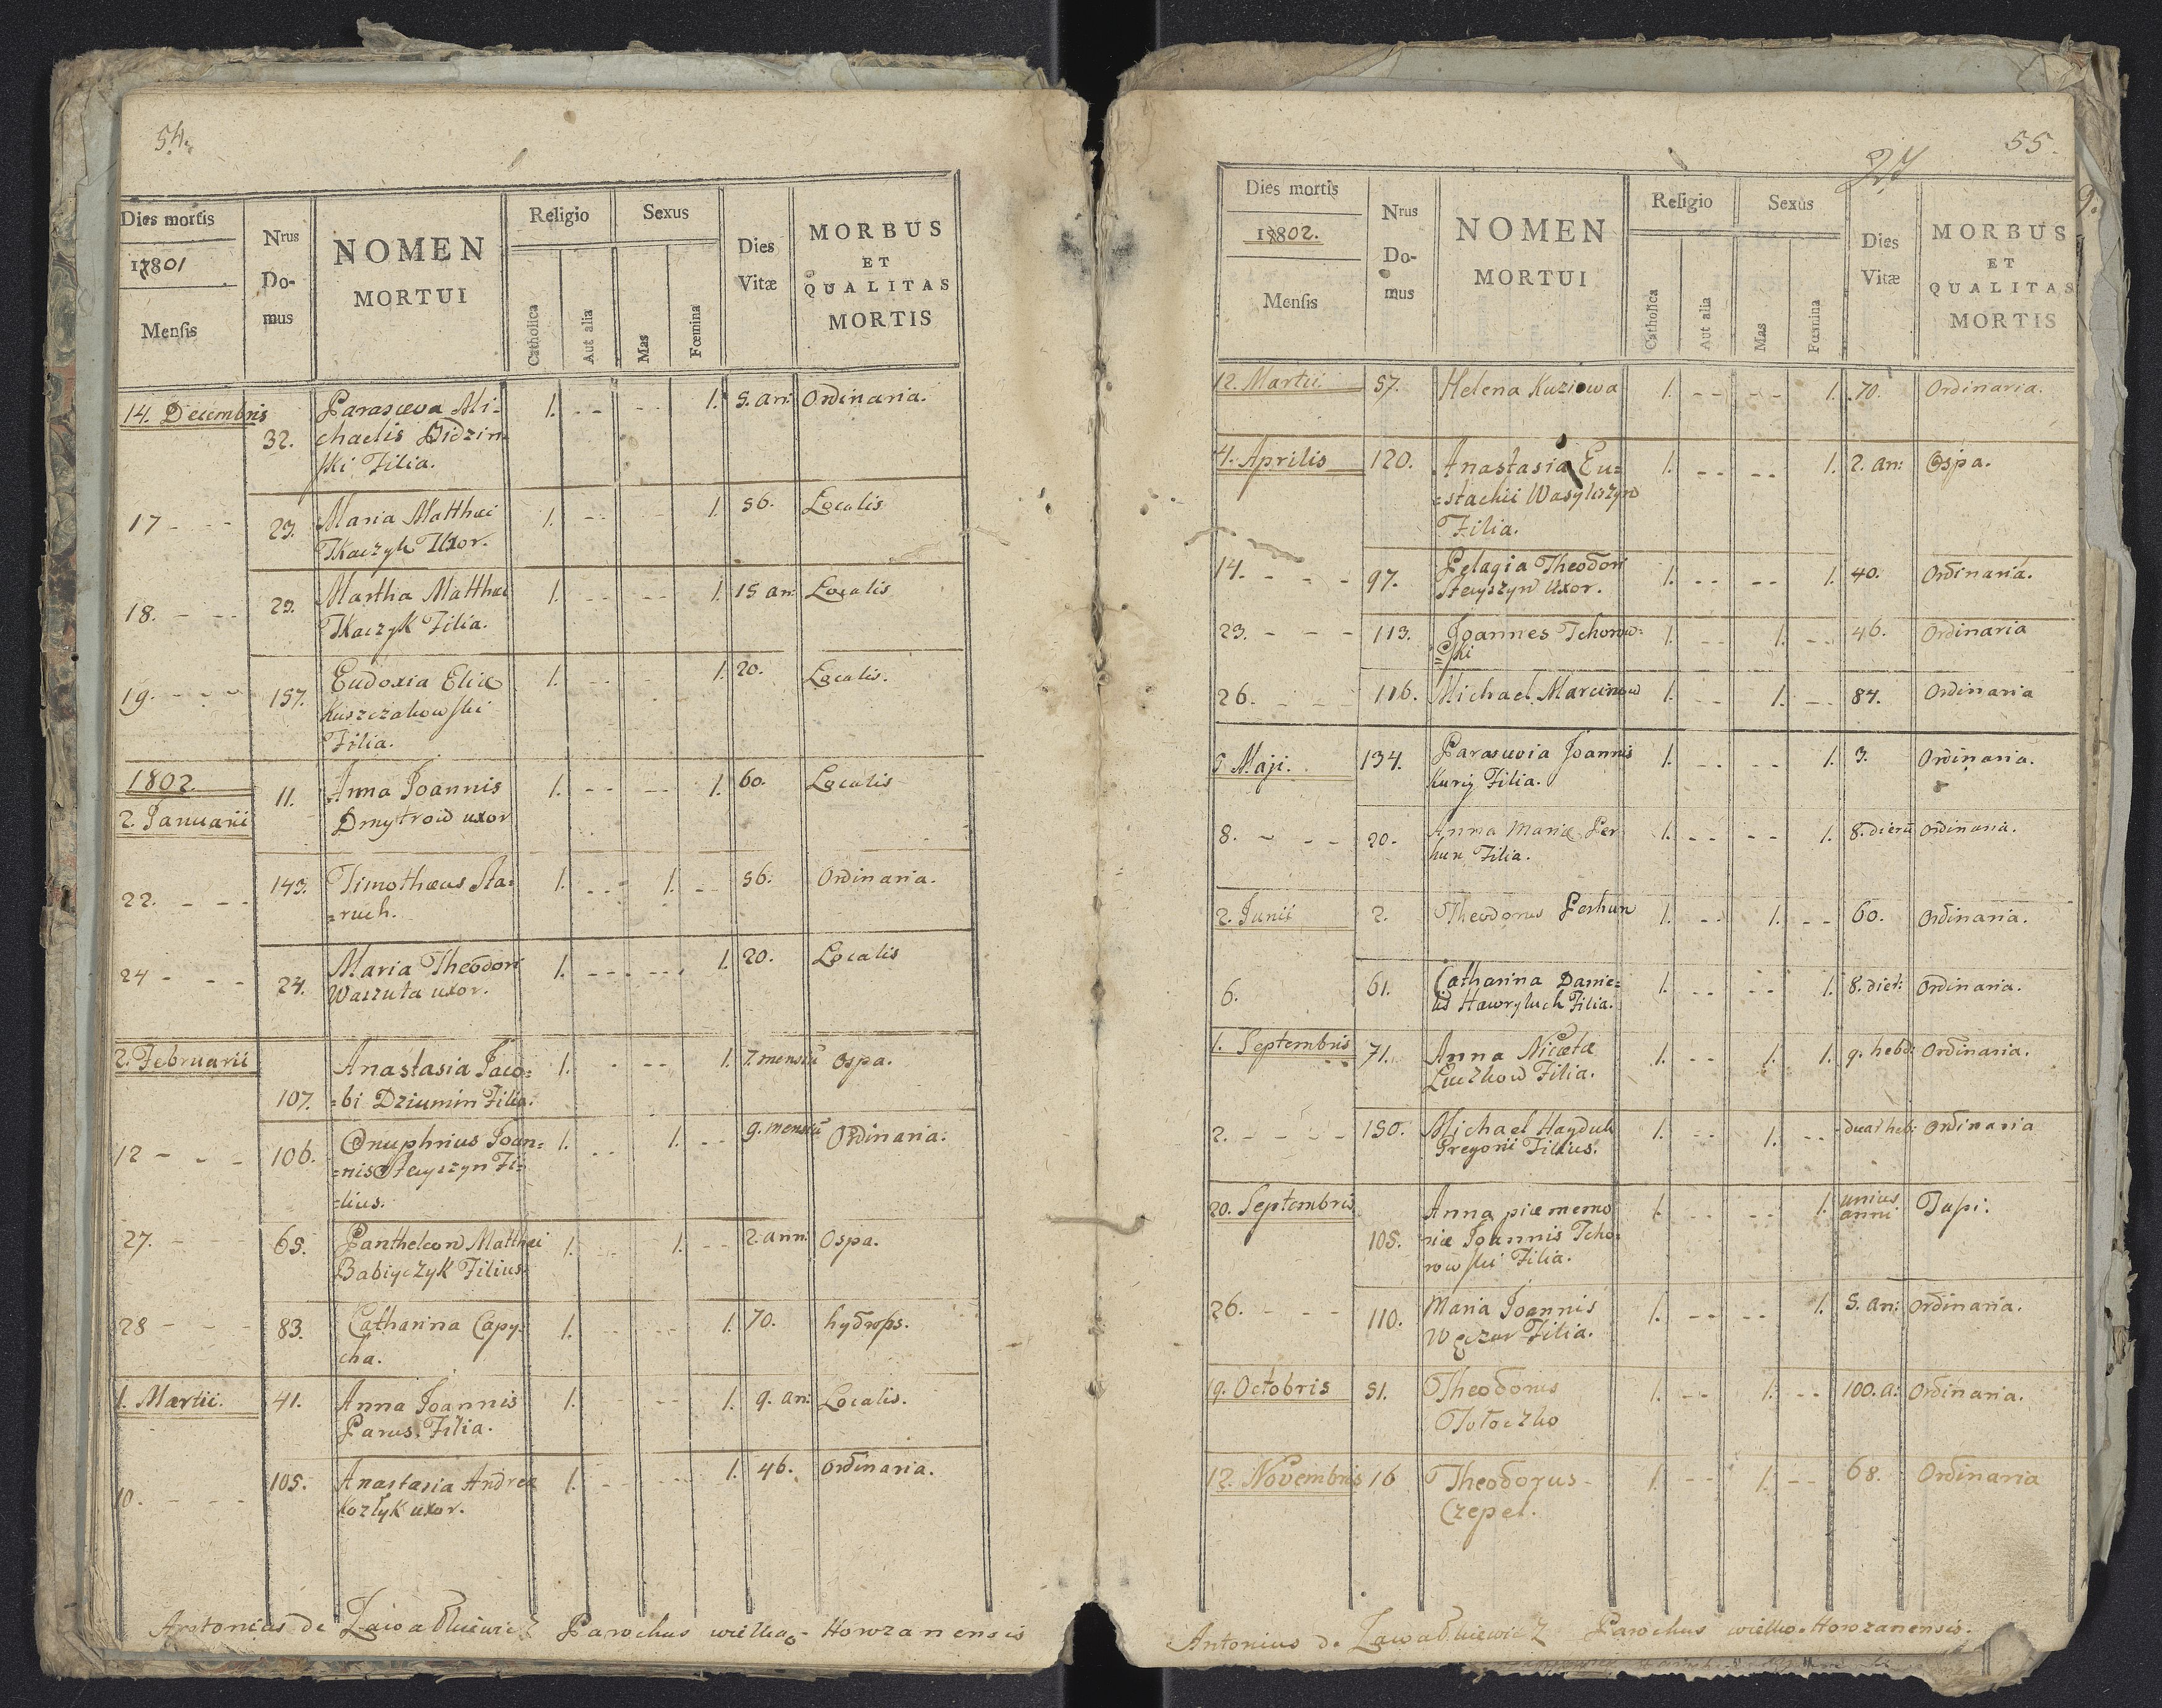 54.
Dies mortis
1801
Mensis
Nrus
Do-
mus
NOMEN
MORTUI
Religio
Catholica
Aut alia
Sexus
Mas
Fœmina
Dies
Vitæ
MORBUS
ET
QUALITAS
MORTIS
14. Decembris 32. Parasceva Mi= 1. - - - - 1. 5. an: Ordinaria.
chaelis Didzin=
ski Filia.
17 - - - 29. Maria Matthæi 1. - - - - 1. 56. Localis
Tkaczyk Uxor.
18. - - - 29. Martha Matthæi 1. - - - - 1. 15 an: Localis
Tkaczyk Filia.
19. - - - 157. Eudoxia Eliæ 1. - - - - 1. 20. Localis.
Kuszczakowski
Filia.
1802.
2. Januarii 11. Anna Joannis 1. - - - - 1. 60. Localis
Dmytrow uxor
22. - - - 143. Timothæus Sta= 1. - - 1. - - 56. Ordinaria.
=ruch.
24 - - - 24. Maria Theodori 1. - - - - 1. 20. Localis
Waszuta uxor.
2. Februarii 107. Anastasia Jaco= 1. - - - 1. 7. mensiū Ospa.
=bi Dziumin Filia.
12 - - - 106. Onuphrius Joan= 1. - - 1. - - 9. mensiū Ordinaria.
=nis Stecyszyn Fi=
=lius.
27. - - - 65. Pantheleon Matthæi 1. - - 1. - - 2. ann: Ospa.
Babiyczyk Filius.
28 - - - 83. Catharina Capy= 1. - - - - 1. 70. hydrops.
cha.
1. Martii. 41. Anna Joannis 1. - - - 1. 9. an: Localis.
Parus. Filia.
10. - - - 105. Anastasia Andreæ 1. - - - - 1. 46. Ordinaria.
Kozłyk uxor.
Antonius de Zawałkiewicz Parochus wielko-Howzanensis
55.
27
Dies mortis
1802.
Mensis
Nrus
Do-
mus
NOMEN
MORTUI
Religio
Catholica
Aut alia
Sexus
Mas
Fœmina
Dies
Vitæ
MORBUS
ET
QUALITAS
MORTIS
12. Martii 57. Helena Kuziowa 1. - - - - 1. 70. Ordinaria.
4. Aprilis 120. Anastasia Eu= 1. - - - - 1. 2. an: Ospa.
=stachii Wasylczyn
Filia.
14. - - - 97. Pelagia Theodori 1. - - - - 1. 40. Ordinaria.
Stecyszyn Uxor.
23. - - - 113. Joannes Tchorow= 1. - - 1. - 46. Ordinaria
=ski
26. - - - 116. Michael Marcinow 1. - - 1. - - 84. Ordinaria
5 Maji. 134. Parascevia Joannis 1. - - - - 1. 3. Ordinaria.
Kurij Filia.
8. - - - 20. Anna Mariæ Per 1. - - - - 1. 8. dierū Ordinaria.
hun Filia.
2. Junii 2. Theodorus Perhun 1. - - 1. - - 60. Ordinaria.
6. 61. Catharina Danie= 1. - - - - 1. 8. dier: Ordinaria.
lis Hawryluch Filia.
1. Septembris 71. Anna Nicetæ 1. - - 1. 1. 9. hebd: Ordinaria.
Luczkow Filia.
2. - - - - 150. Michael Hayduk 1. - - 1. - - duar heb: Ordinaria
Gregorii Filius.
20. Septembris 105. Anna piæ memo 1. - - - - 1. unius
anni Tusi:
riæ Joannis Tcho=
rowski Filia.
26. - - - 110. Maria Joannis 1. - - - - 1. 5. an: Ordinaria.
Węczur Filia.
19. Octobris 51. Theodorus 1. - - 1. - - 100. a: Ordinaria.
Tołoczko
12. Novembris 16 Theodorus 1. - - 1. - - 68. Ordinaria
Czepel.
Antonius de Zawałkiewicz Parochus wielko-Howzanensis.